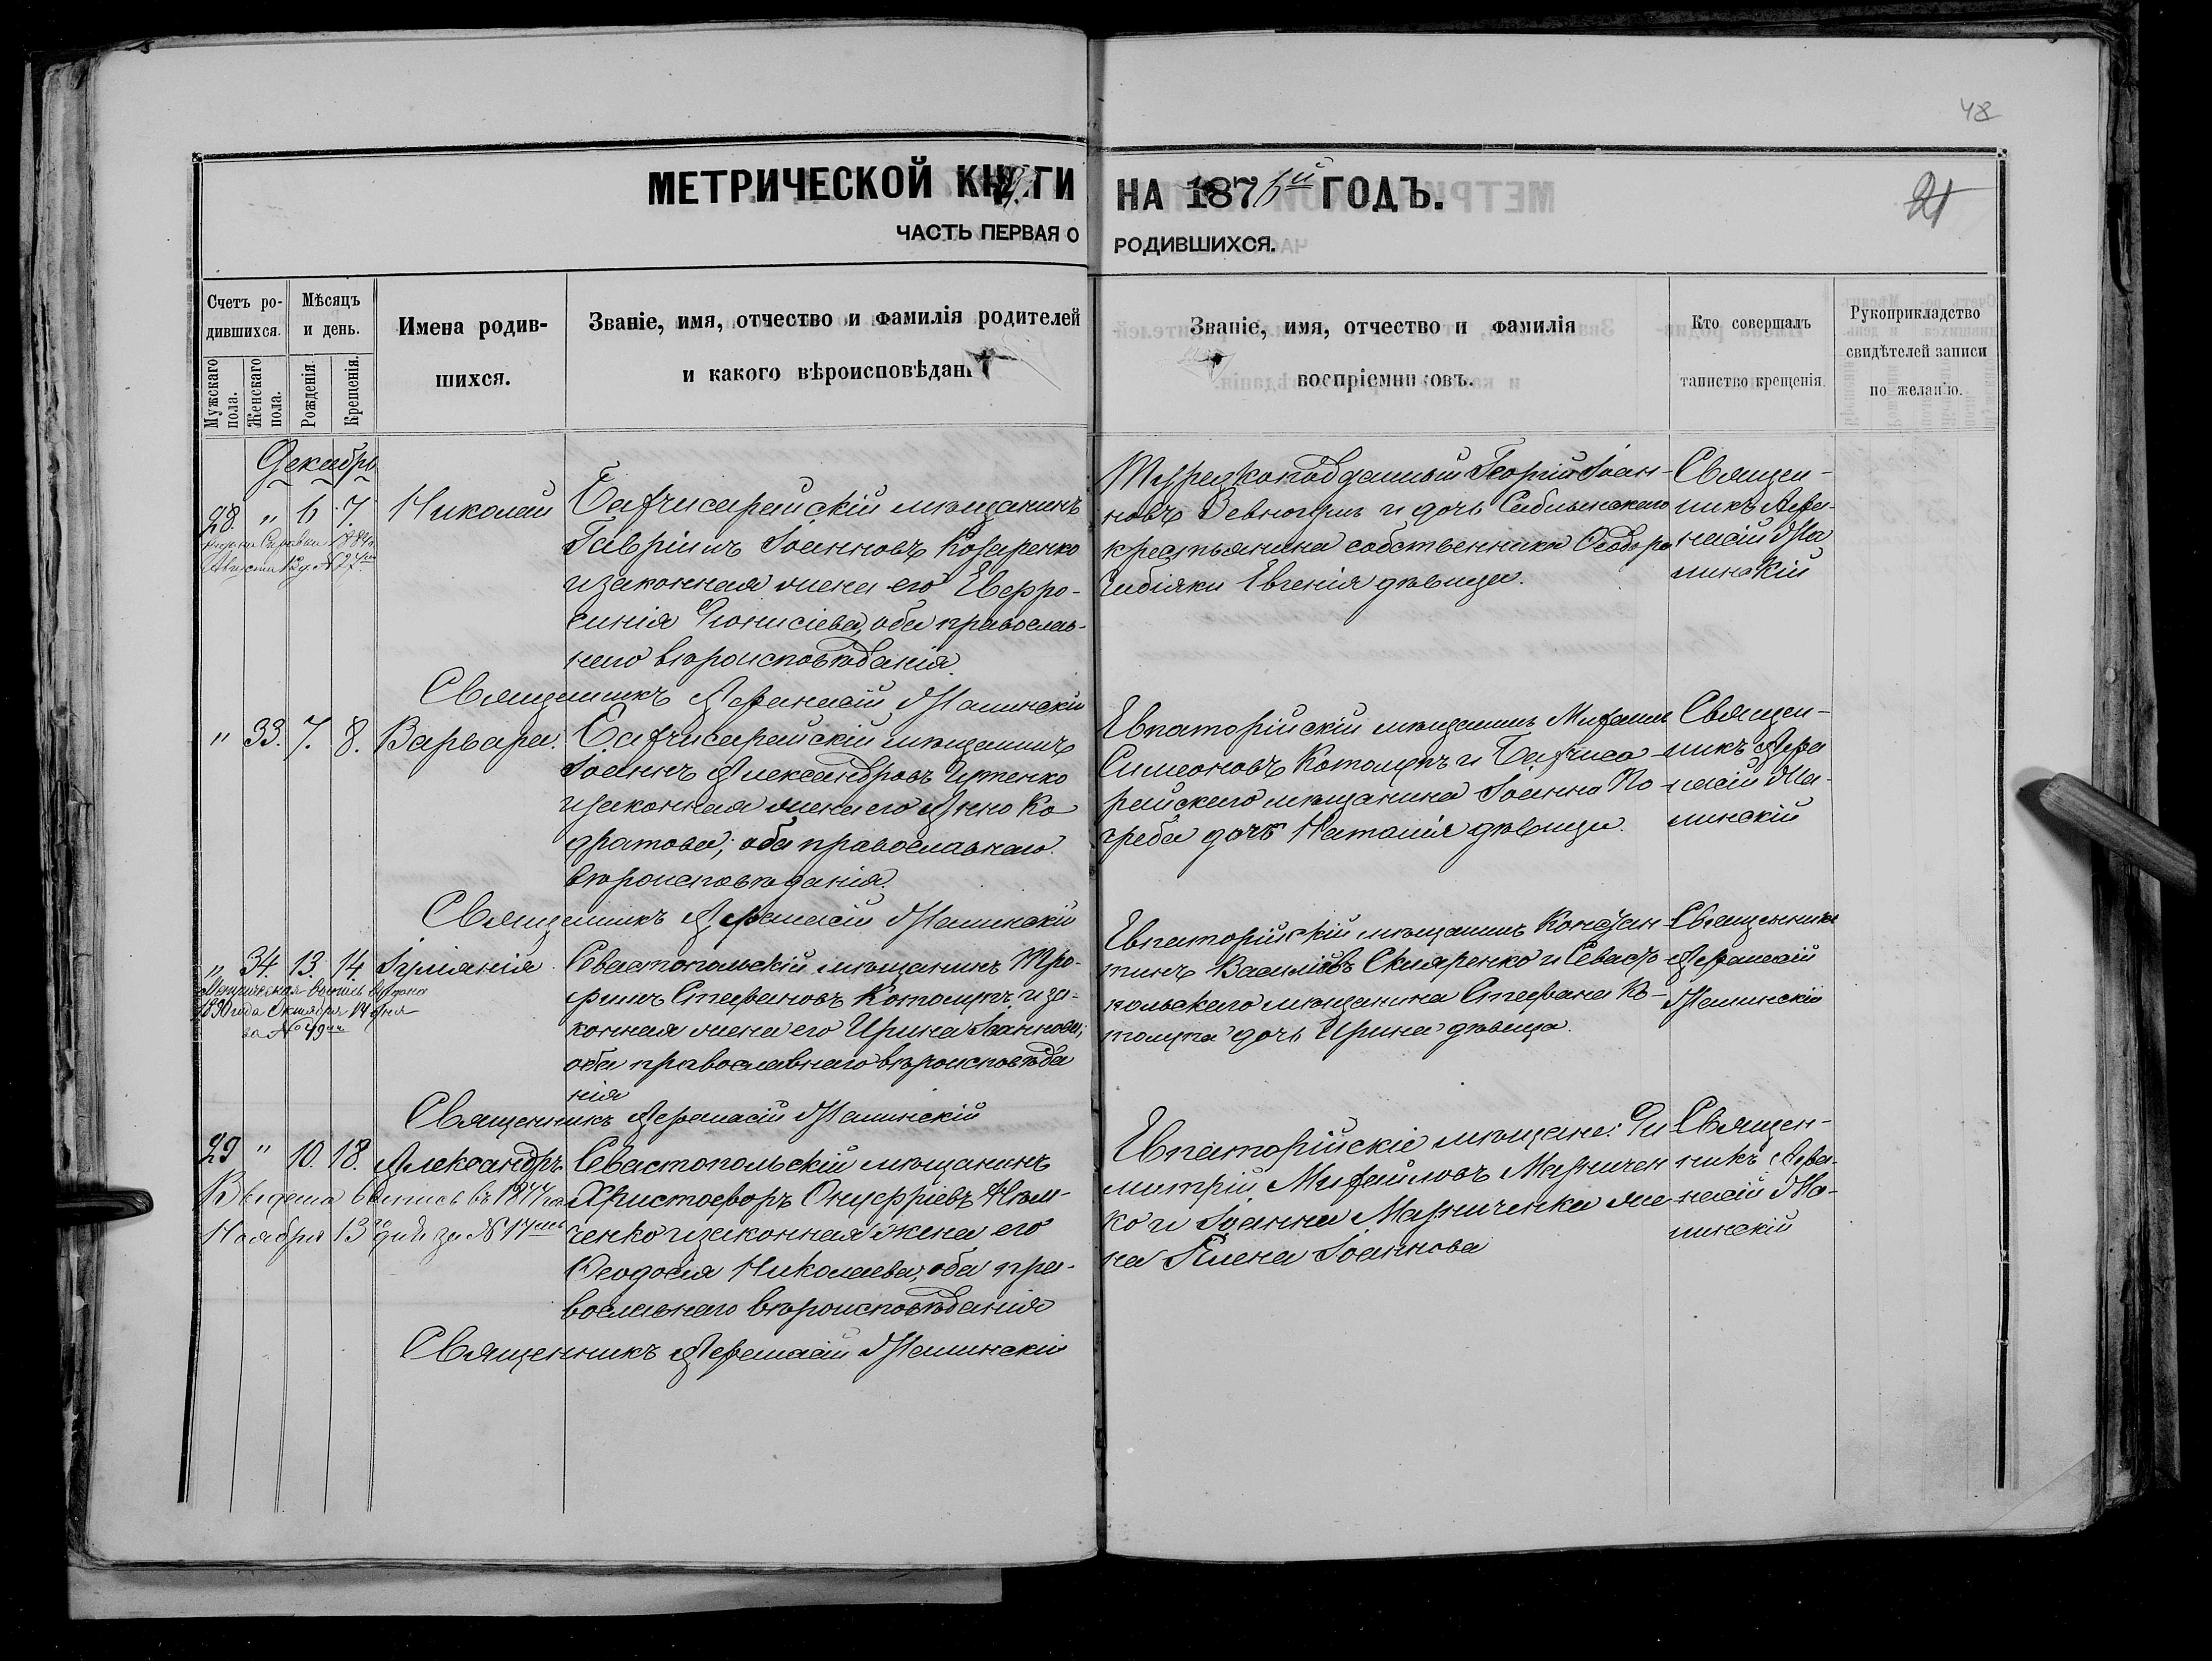 48
МЕТРИЧЕСКОЙ КНИГИ НА 1876й ГОДЪ.
21
ЧАСТЬ ПЕРВАЯ О РОДИВШИХСЯ.
Счетъ ро-
дившихся.
Мужскаго пола.
Женскаго пола.
Мѣсяцъ
и день.
Рожденія.
Крещенія.
Имена родив-
шихся.
Званіе, имя, отчество и фамилія родителей
и какого вѣроисповѣданія
Званіе, имя, отчество и фамилія
воспріемниковъ.
Кто совершалъ
таинство крещенія.
Рукоприкладство
свидѣтелей записи
по желанію.
Декабрь
28. " 6 7. Николай
Справка 1889
Августа 12 № 27
Бахчисарайскій мѣщанинъ
Гавріилъ Іоанновъ Козаренко
и законная жена его Евфро-
синія Діонисіева, оба православ-
наго вѣроисповѣданія.
Священникъ Афанасій Малинскій
Георгій Іоан-
новъ и дочь Сабльинскаго
крестьянина собственника Ѳеодора
Евгенія дѣвица.
Священ-
никъ Афа-
насій Ма
линскій
" 33. 7. 8. Варвара.
Бахчисарайскій мѣщанинъ
Іоаннъ Александровъ
и законная жена его Анна Ко
дратова; оба православнаго
вѣроисповѣданія.
Священникъ Афанасій Малинскій
Евпаторійскій мѣщанинъ Михаилъ
Симеоновъ Котолупъ и Бахчиса-
райскаго мѣщанина Іоанна По
греба дочь Наталія дѣвица.
Священ-
никъ Афа
насій Ма-
линскій
" 34. 13. 14 Іуліанія.
Метрическая выпись выдана
1890 года Октября 14 дня
за № 49
Севастопольскій мѣщанинъ Тро-
фимъ Стефановъ Котолупъ и за-
конная жена его Ирина Іоаннова;
оба православнаго вѣроисповѣда
нія
Священникъ Афанасій Малинскій
Евпаторійскій мѣщанинъ Констан
тинъ Василіевъ Скляренко и Севасто
польскаго мѣщанина Стефана Ко-
толупа дочь Ирина дѣвица.
Священникъ
Афанасій
Малинскій
29 " 10. 18. Александръ
выпись въ 1877
Ноября 13го дня за № 17
Севастопольскій мѣщанинъ
Христофоръ Онуфріевъ
ченко и законная жена его
Ѳеодосія Николаева; оба пра-
вославнаго вѣроисповѣданія
Священникъ Афанасій Малинскій
Евпаторійскіе мѣщане: Ди
митрій Михайловъ
ко и Іоанна же
на Елена Іоаннова
Священ-
никъ Афа-
насій Ма-
линскій